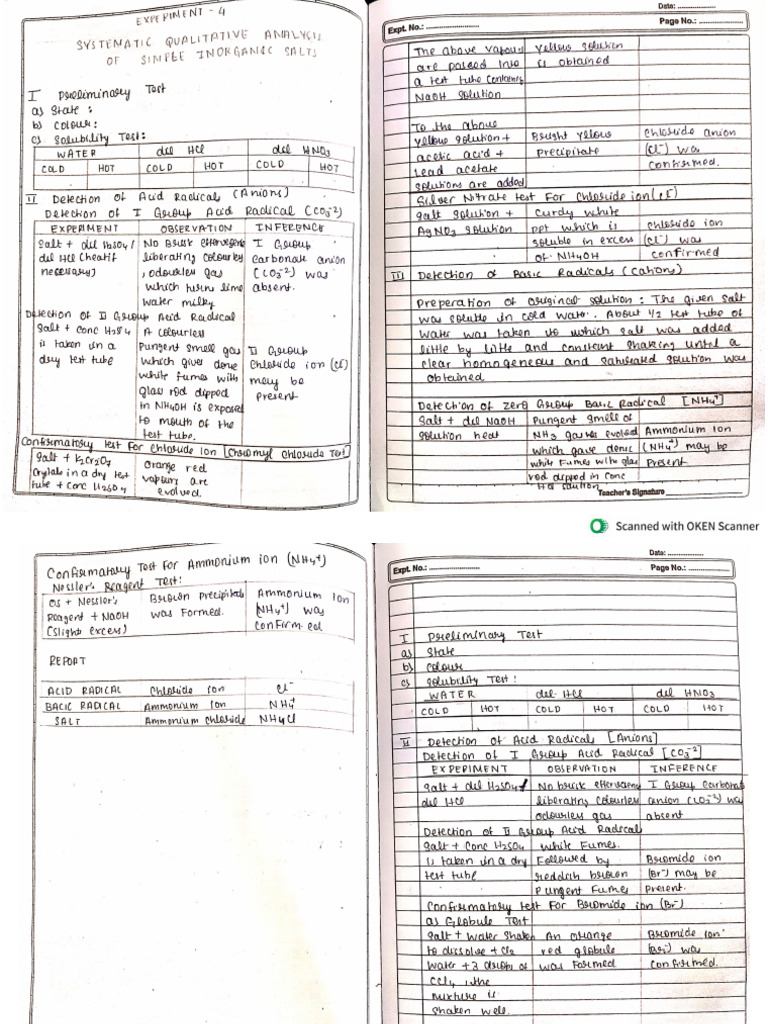 EXPERIMENT - 4
SYSTEMATIC QUALITATIVE ANALYSIS
OF SIMPLE INORGANIC SALTS
I Preliminary Test
a) State :
b) Colour :
c) Solubility Test :
WATER dil HCl dil HNO3
COLD HOT COLD HOT COLD HOT
II Detection of Acid Radicals (Anions)
Detection of I Group Acid Radical (CO3-2)
EXPERIMENT OBSERVATION INFERENCE
Salt + dil H2SO4 / No brisk effervescene I Group
dil HCl (heat if liberating colourless carbonate anion
necessary) , odourless gas (CO3-2) was
which turns lime absent.
water milky
Detection of II Group Acid Radical
Salt + Conc H2SO4 A colourless
is taken in a Pungent smell gas II Group
dry test tube which gives dense Chloride ion (Cl-)
white fumes with may be
glass rod dipped present
in NH4OH is exposed
to mouth of the
test tube.
Confirmatory test for chloride ion [Chromyl Chloride Test]
Salt + K2Cr2O7 Orange red
Crystals in a dry test vapours are
tube + Conc H2SO4 evolved.
Date: ..................
Expt. No.: ........................ Page No.: ..................
The above vapours yellow solution
are passed into is obtained
a test tube containing
NaOH solution
To the above
yellow solution + Bright yellow Chloride anion
acetic acid + Precipitate (Cl-) was
Lead acetate confirmed.
solutions are added
Silver Nitrate test For Chloride ion (Cl-)
Salt solution + Curdy white
AgNO3 solution ppt which is Chloride ion
soluble in excess (Cl-) was
of NH4OH confirmed
III Detection of Basic Radicals (Cations)
Preperation of original solution : The given salt
was soluble in cold water. About 1/2 test tube of
water was taken to which salt was added
little by little and constant shaking until a
clear homogeneous and saturated solution was
obtained
Detection of Zero Group Basic Radical [NH4+]
Salt + dil NaOH Pungent smell of
solution heat NH3 gas was evolved Ammonium ion
which gave dense (NH4+) may be
white fumes with glass Present
rod dipped in conc
HCl solution
Teacher's Signature
Scanned with OKEN Scanner
Confirmatory Test For Ammonium ion (NH4+)
Nessler's Reagent Test :
OS + Nessler's Brown Precipitate Ammonium Ion
Reagent + NaOH was formed. (NH4+) was
(slight excess) confirmed
REPORT
ACID RADICAL Chloride ion Cl-
BACIC RADICAL Ammonium ion NH4+
SALT Ammonium chloride NH4Cl
Date: ..................
Expt. No.: ........................ Page No.: ..................
I Preliminary Test
a) State
b) Colour
c) Solubility Test :
WATER dil HCl dil HNO3
COLD HOT COLD HOT COLD HOT
II Detection of Acid Radicals [Anions]
Detection of I Group Acid Radical [CO3-2]
EXPERIMENT OBSERVATION INFERENCE
Salt + dil H2SO4 / No brisk effervescene I Group Carbonate
dil HCl liberating colourless anion (CO3-2) was
odourless gas absent
Detection of II Group Acid Radical
Salt + Conc H2SO4 white Fumes.
is taken in a dry Followed by Bromide ion
test tube reddish brown (Br-) may be
Pungent Fumes Present.
Confirmatory test For Bromide ion (Br-)
a) Globule Test
Salt + Water shaken An orange Bromide Ion
to dissolve + Cl2 red globule (Br-) was
Water + 3 drops of was Formed Confirmed.
CCl4 , the
mixture is
shaken well.